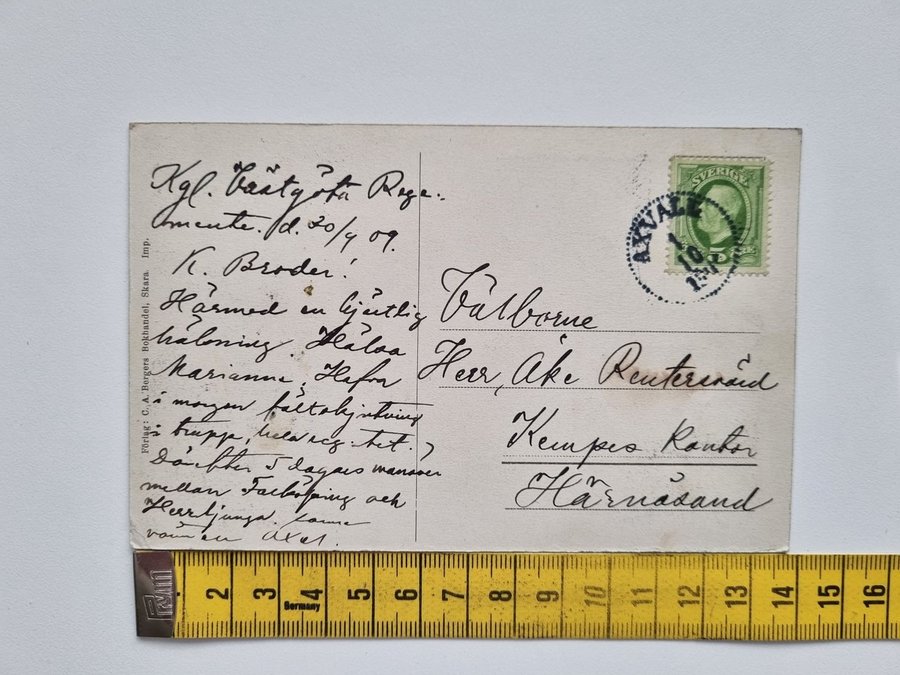 Kgl. Västgöta Rege-
mente. d. 20/9 09.
K. Broder!
Härmed en hjertlig
hälsning. Hälsa
Marianne. Hafva
i morgon fältskjutning
i trupp, hela reg:tet.
Därefter 5 dagars manöver
mellan Falköping och
Herrljunga.
vännen Axel.
Förlag: C. A. Bergers Bokhandel, Skara. Imp.
SVERIGE
5 ÖRE
AXVALL
1
10
Välborne
Herr, Åke Reuterswärd
Kempes Kontor
Härnösand
PMM
2 3 4 5 6 7 8 9 10 11 12 13 14 15 16
Germany